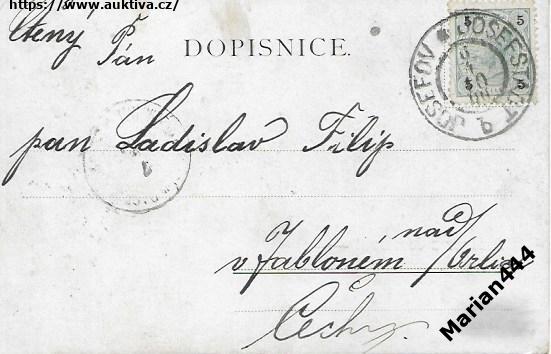 https://www.auktiva.cz/
Ctěný Pán
DOPISNICE.
5 5
5 5
JOSEFOV * JOSEFSTADT
pan Ladislav Filip
v Jabloném nad/Orlicí
Čechy.
Marian444